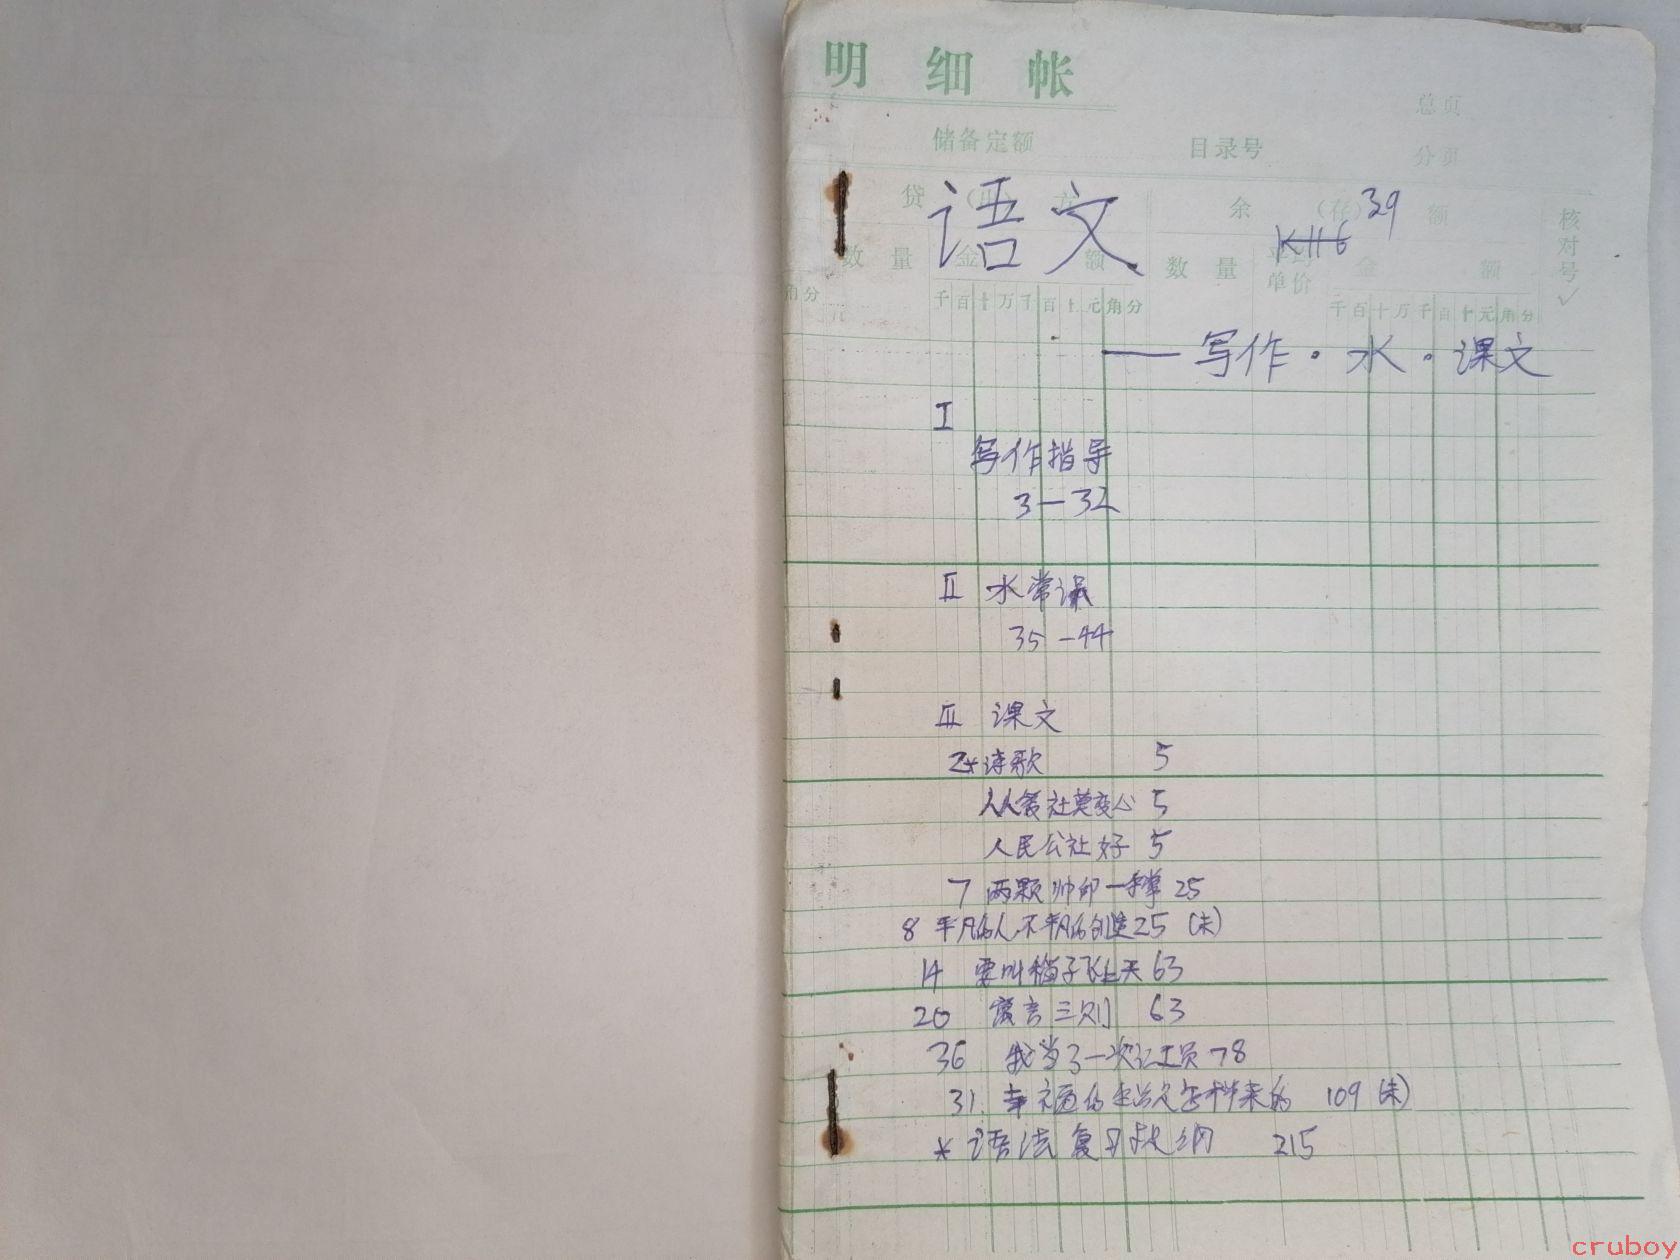 明细帐
总页
储备定额 目录号 分页
贷 方 余 (存) 额 核对号✓
语文 39
KH6
数量 金 额 数量 单价 金 额
角分 千百十万千百十元角分 千百十万千百十元角分
——写作·水·课文
I
写作指导
3—32
II 水常识
35—44
III 课文
2* 诗歌 5
人人爱社莫变心 5
人民公社好 5
7 两颗帅印一手掌 25
8 平凡的人,不平凡的创造 25 (未)
14 要叫稻子飞上天 63
20 寓言三则 63
36 我当了一次记工员 78
31 幸福的生活是怎样来的 109 (未)
* 语法复习提纲 215
cruboy